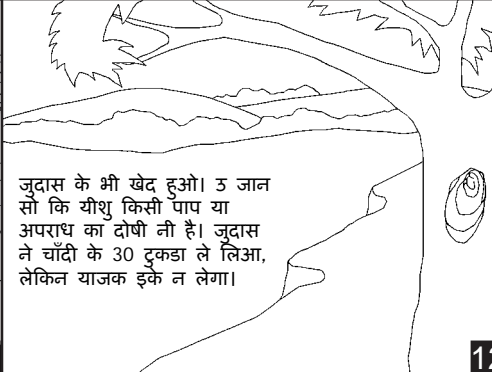 जुदास के भी खेद हुओ। उ जान
सो कि यीशु किसी पाप या
अपराध का दोषी नी है। जुदास
ने चाँदी के 30 टुकडा ले लिआ,
लेकिन याजक इके न लेगा।
12